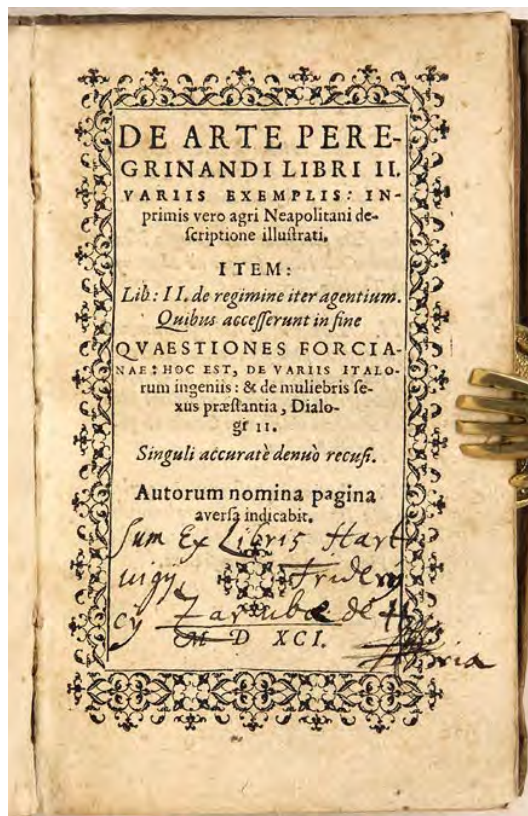 DE ARTE PERE-
GRINANDI LIBRI II.
VARIIS EXEMPLIS: IN-
primis vero agri Neapolitani de-
ſcriptione illuſtrati.
ITEM:
Lib: II. de regimine iter agentium.
Quibus acceſſerunt in fine
QVAESTIONES FORCIA-
NAE: HOC EST, DE VARIIS ITALO-
rum ingeniis: & de muliebris ſe-
xus præſtantia, Dialo-
gi II.
Singuli accuratè denuò recuſi.
Autorum nomina pagina
averſa indicabit.
Sum Ex Libris Hart
uigij Friderj
cij Zarubæ de
M D XCI.